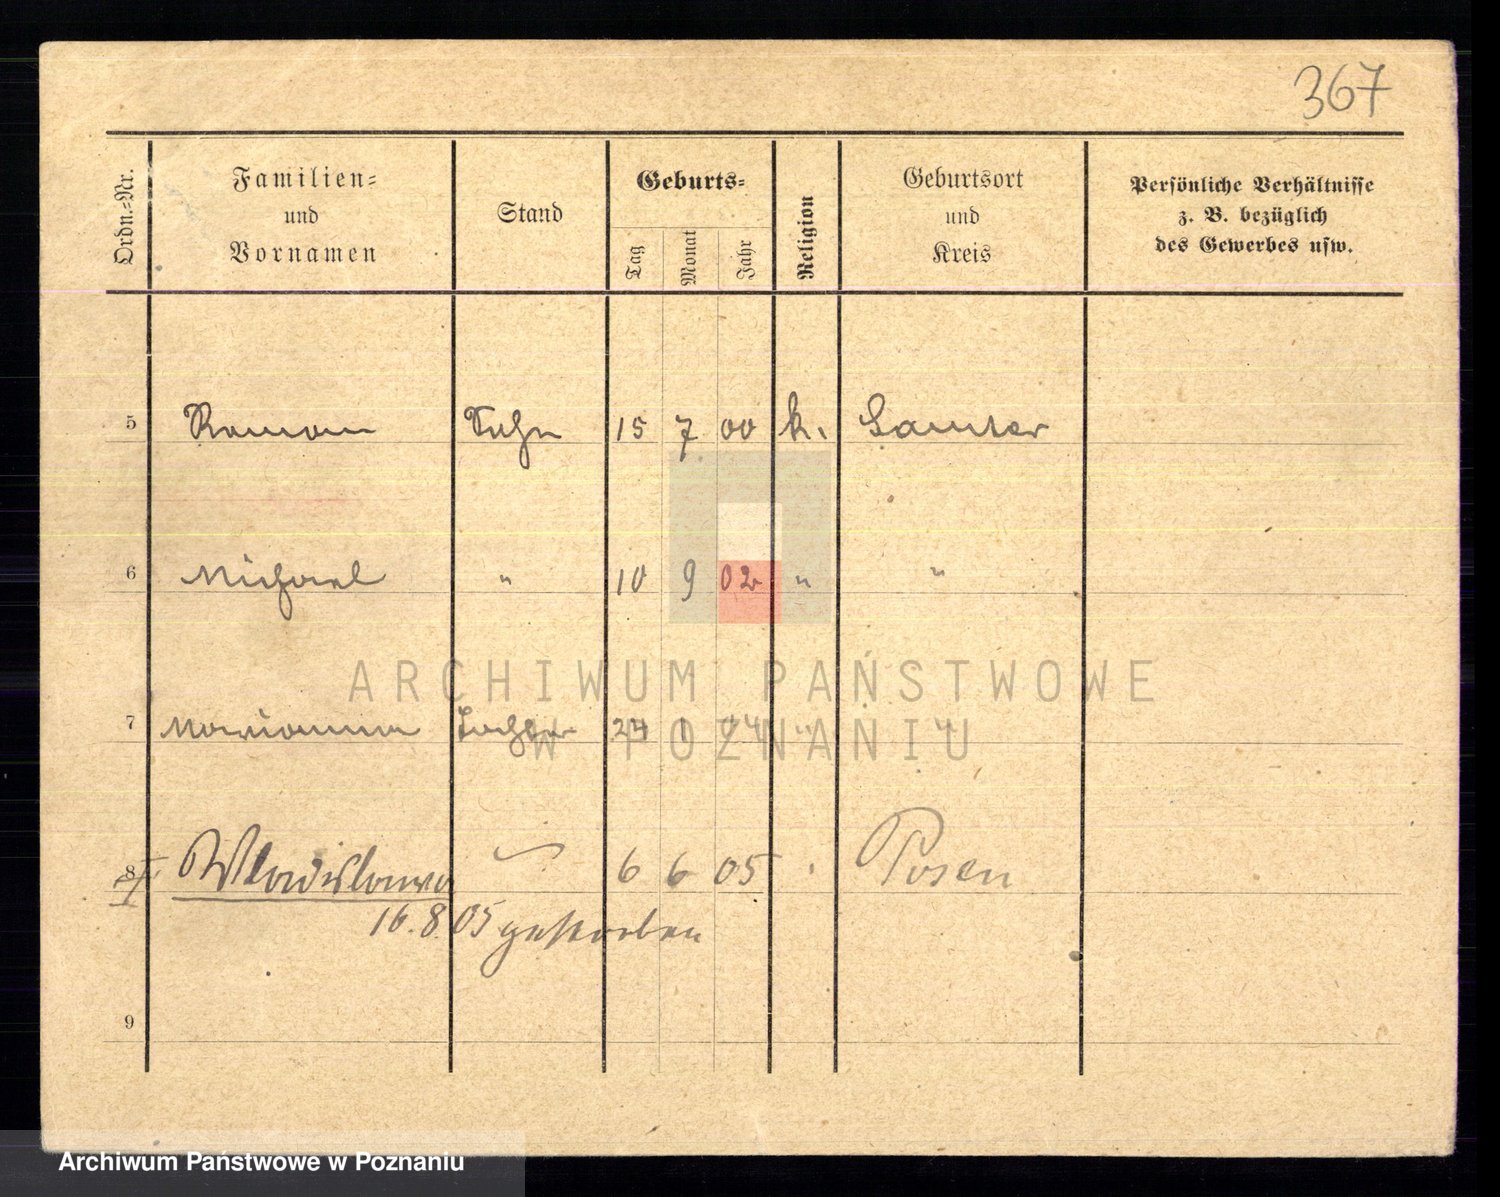 367
Ordn.-Nr.
Familien-
und
Vornamen
Stand
Geburts-
Tag
Monat
Jahr
Religion
Geburtsort
und
Kreis
Persönliche Verhältnisse
z. B. bezüglich
des Gewerbes usw.
5 Roman Sohn 15 7 00 k. Samter
6 Michael " 10 9 02 " "
ARCHIWUM PAŃSTWOWE
7 Marianna Tochter 24 1 04 " "
W POZNANIU
8 Wladislawa 6 6 05 Posen
16.8.05 gestorben
9
Archiwum Państwowe w Poznaniu